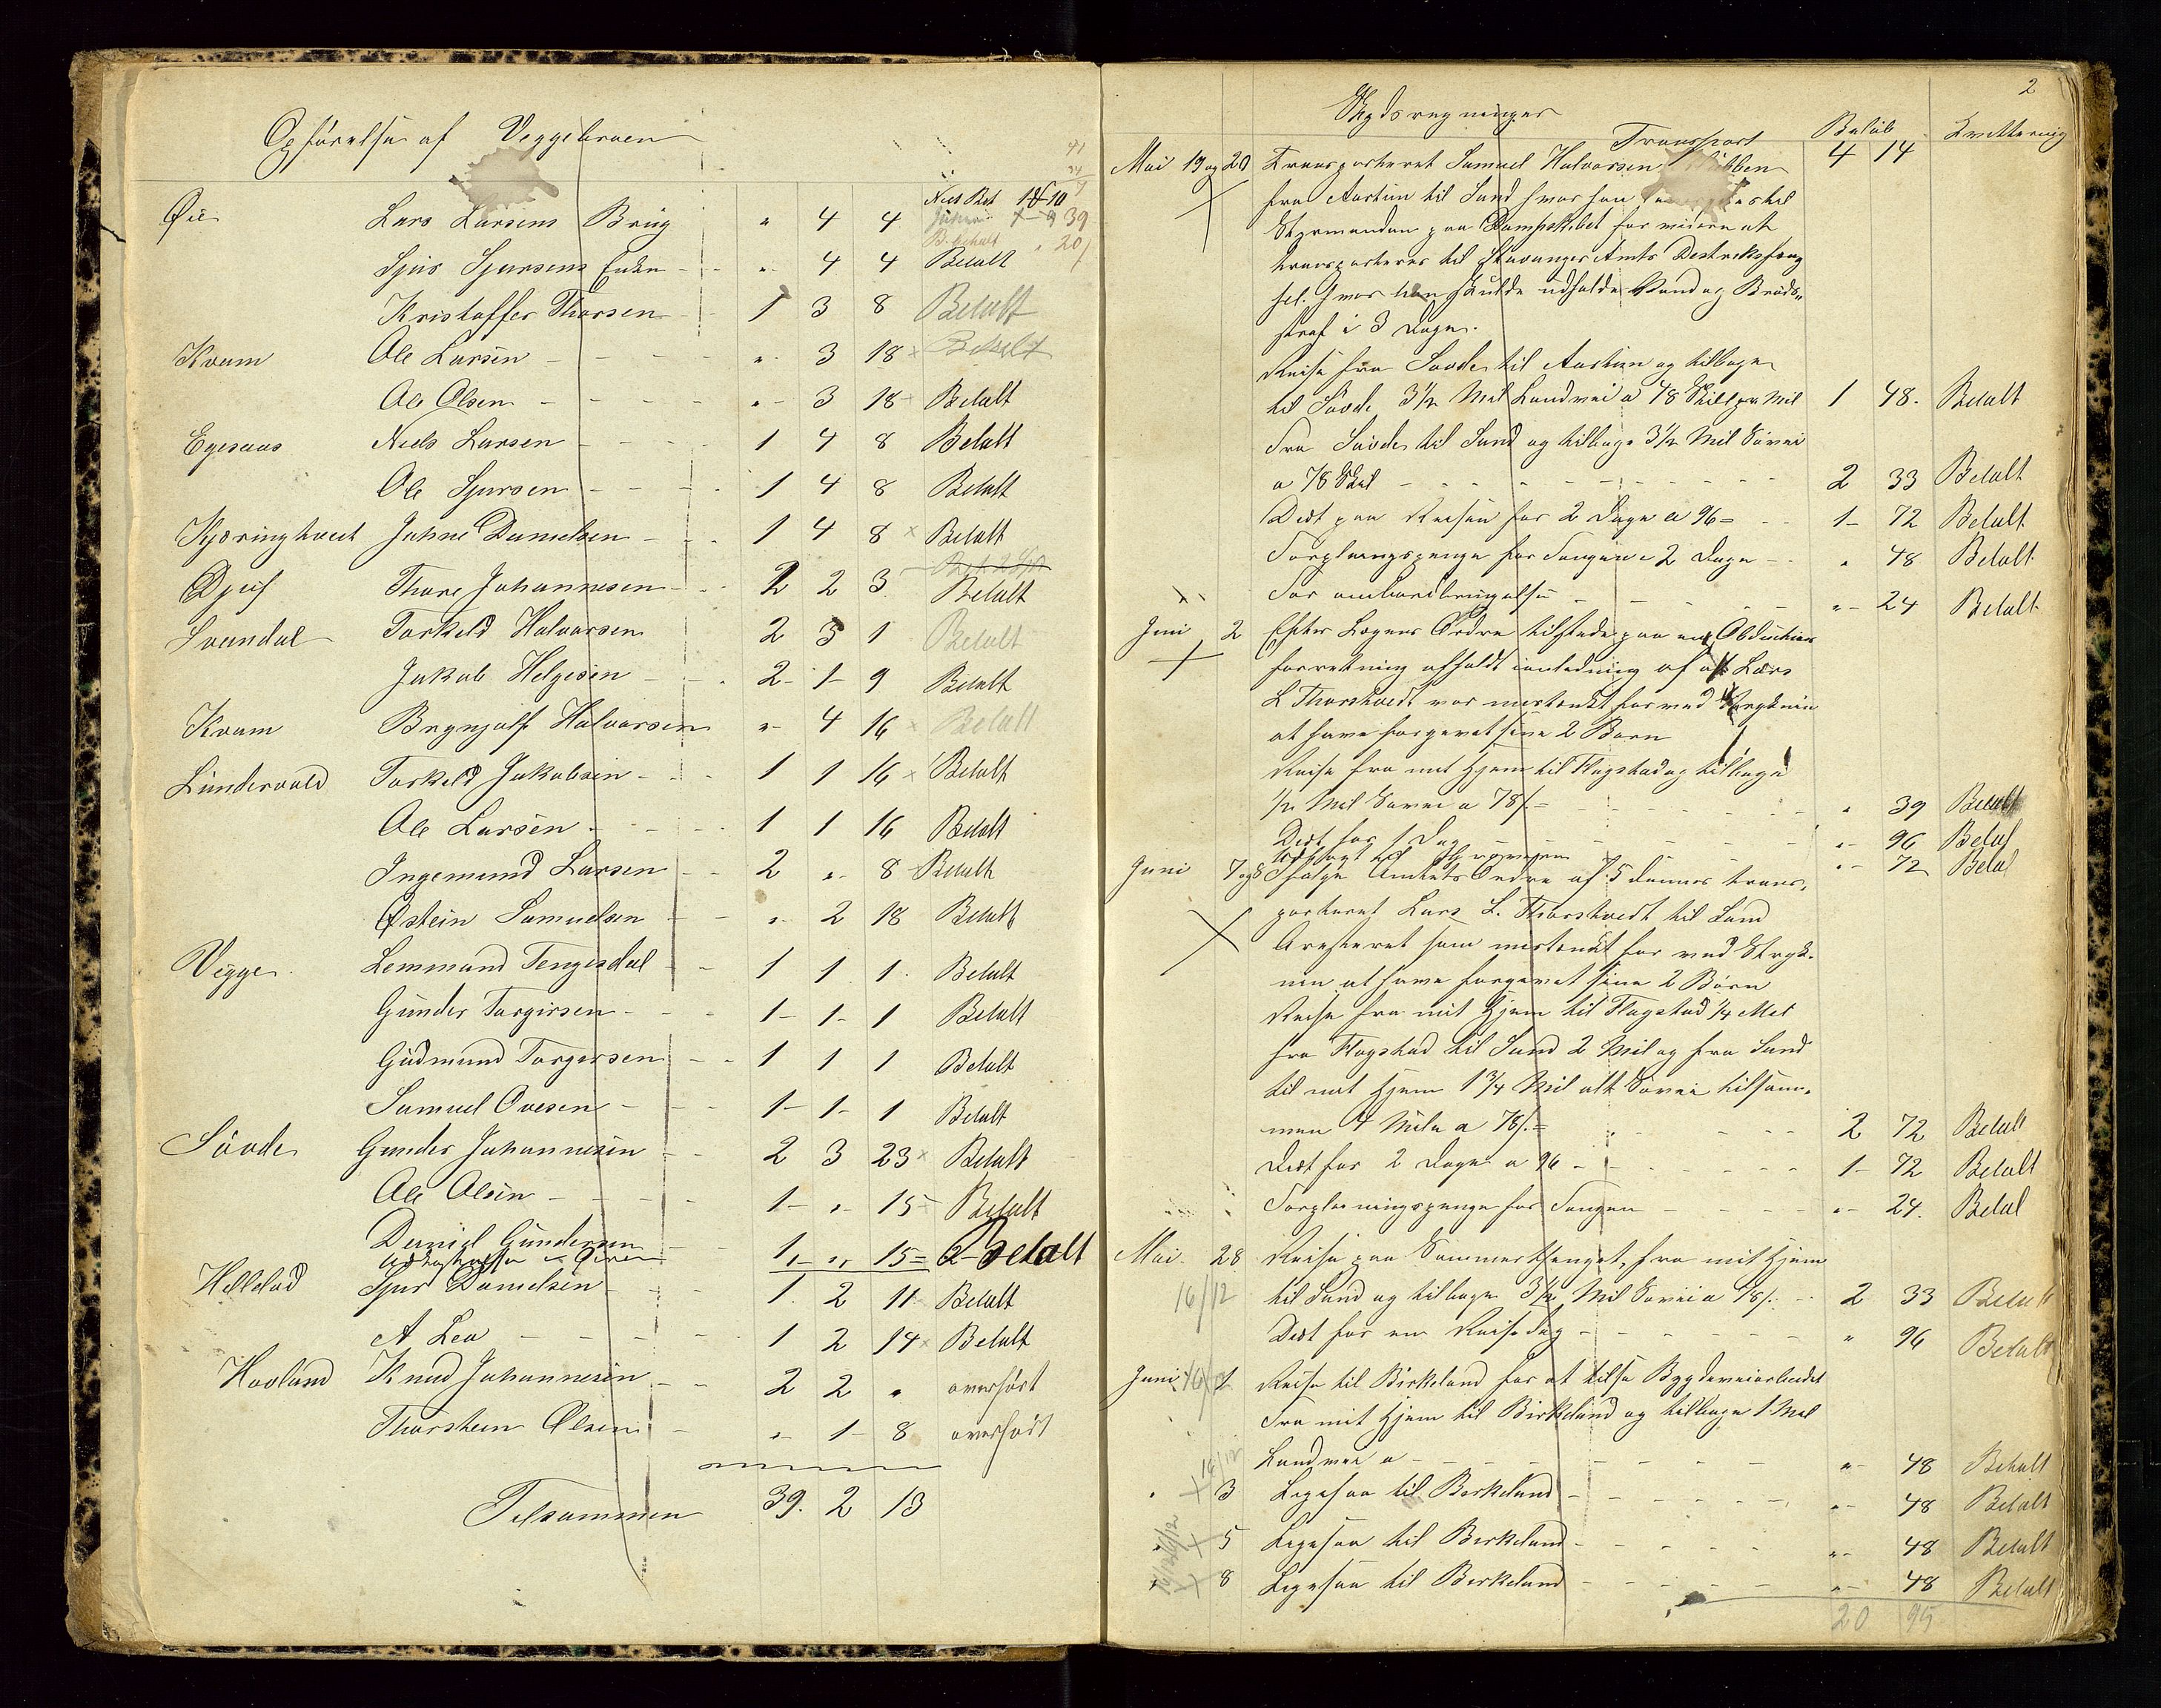 Opførelse af Veggebroen
Øie Lars Larsens Brug " 4 4
Sjurs Sjursens Enke " 4 4 Betalt
Kristoffer Thorsen 1 3 8 Betalt
Kvam Ole Larsen " 3 18 Betalt
Ole Olsen " 3 18 Betalt
Egesaas Niels Larsen 1 4 8 Betalt
Ole Sjursen 1 4 8 Betalt
Kjøringtveit Johne Danielsen 1 4 8 Betalt
Djuf Thore Johannesen 2 2 3 Betalt
Svendal Torkeld Halvorsen 2 3 1 Betalt
Jakob Helgesen 2 1 9 Betalt
Kvam Brynjulf Halvorsen " 4 16 Betalt
Lundevold Torkeld Jakobsen 1 1 16 Betalt
Ole Larsen 1 1 16 Betalt
Ingemund Larsen 2 " 8 Betalt
Østein Samuelsen " 2 18 Betalt
Vegge Lemmand Tengesdal 1 1 1 Betalt
Gunder Torgirsen 1 1 1 Betalt
Gudmund Torgersen 1 1 1 Betalt
Samuel Ovesen 1 1 1 Betalt
Søvde Gunder Johannesen 2 3 23 Betalt
Ole Olsen 1 " 15 Betalt
Daniel Gundersen 1 " 15 Betalt
Hellelad Sjur Danielsen 1 2 11 Betalt
A Lea 1 2 14 Betalt
Hovland Knud Johannesen 2 2 " overført
Thorstein Olsen " 1 8 overført
Tilsammen 39. 2 13
2
Skydsregninger
Transport Beløb Kvittering
4 14
Mai 19 og 20 Transporteret Samuel Halvorsen
fra Aartun til Sand hvor han
Styrmanden paa Dampskibet for videre at
transporteres til Stavanger Amts Destriktsfæng
sel. hvor han skulde udholde Vand og Brøds„
straf i 3 Dage.
Reise fra Søvde til Aartun og tilbage
til Søvde 3 1/2 Mil Landvei a 48 Skill pr Mil 1 48. Betalt
Fra Søvde til Sand og tilbage 3 1/2 Mil Søvei
a 78 Skil 2 33 Betalt
Diæt paa Reisen for 2 Dage a 96= 1 72 Betalt
Forpleiningspenge for Fangen i 2 Dage " 48 Betalt
For ombordbringelse " 24 Betalt
Juni 2 Efter Lægens Ordre tilstede paa en Obduktions
forretning afholdt i anledning af at Lars
L Thorstvedt var mistænkt for ved Stryknin
at have forgivet sine 2 Børn
Reise fra mit Hjem til Flogstad og tilbage
1/2 Mil Søvei a 78/= " 39 Betalt
Diæt for 1 Dag " 96 Betal
" 72 Betal
Juni 7 og 8 Ifølge Amtets Ordre af 5 dennes trans„
porteret Lars L. Thorstvedt til Sand
Aresteret som mistænkt for ved Stryk„
nin at have forgivet sine 2 Børn
Reise fra mit Hjem til Flogstad 1/4 Mil
fra Flogstad til Sand 2 Mil og fra Sand
til mit Hjem 1 3/4 Mil alt Søvei tilsam„
men 4 Mile a 78/.= 2 72 Betalt
Diæt for 2 Dage a 96 1 72 Betalt
Forpleiningspenge for Fangen " 24. Betal
Mai 28 Reise paa Sommerthinget, fra mit Hjem
16/12 til Sand og tilbage 3 1/2 Mil Søvei a 78/. 2 33 Betalt
Diæt for en Reisedag " 96 Betalt
Juni 1 Reise til Birkeland for at tilse Bygdeveiarbeidet
Fra mit Hjem til Birkeland og tilbage 1 Mil
Landvei a " 48 Betalt
3 Ligesaa til Berkeland " 48 Betalt
5 Ligesaa til Berkeland " 48 Betalt
8 Ligesaa til Berkeland " 48 Betalt
20 95